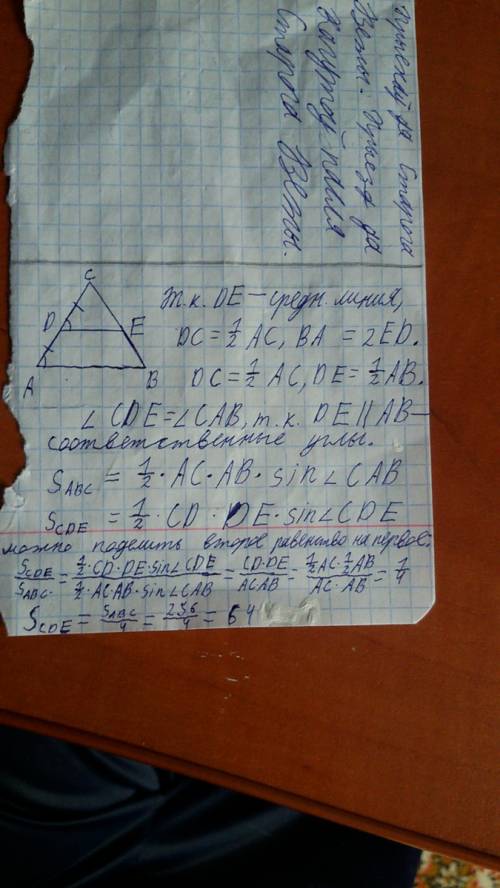 Прыехаў да Старога
Вязы. Прыезд да
Старога Вязы.
C
D E
A B
т.к. DE — средн. линия,
DC = 1/2 AC, BA = 2ED.
DC = 1/2 AC, DE = 1/2 AB.
∠CDE = ∠CAB, т.к. DE || AB —
соответственные углы.
S_ABC = 1/2 · AC · AB · sin∠CAB
S_CDE = 1/2 · CD · DE · sin∠CDE
можно поделить второе равенство на первое:
S_CDE / S_ABC = (1/2 · CD · DE · sin∠CDE) / (1/2 · AC · AB · sin∠CAB) = (CD · DE) / (AC AB) = (1/2 AC · 1/2 AB) / (AC · AB) = 1/4
S_CDE = S_ABC / 4 = 256 / 4 = 64